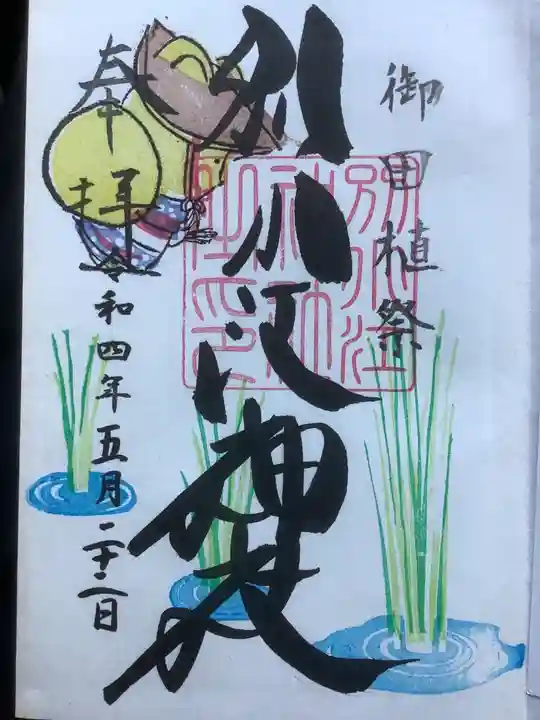 御田植祭
別小江神社
奉拝
令和四年五月二十二日
別小江
神社